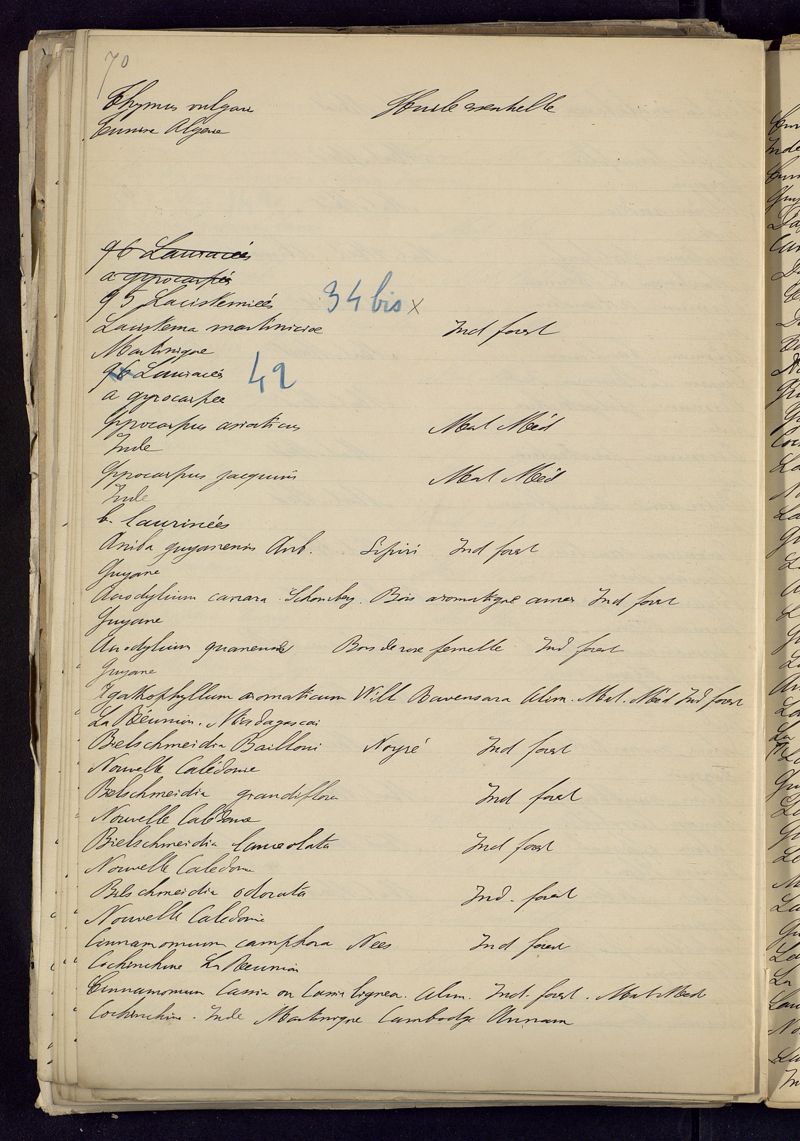 70
Thymus vulgare Huile essentielle
Tunisie Algérie
96 Lauracées
a gyrocarpées
95 Lacistemicés 34 bis x
Lacistema martinicise Ind forest
Martinique
96 Lauracés 42
a gyrocarpee
Gyrocarpus asiaticus Mat Méd
Inde
Gyrocarpus jacquinis Mat Méd
Inde
b. Laurinées
Aniba guyanensis Aub. Sipiri Ind forest
Guyane
Acrodyclium canara. Schomberg. Bois aromatique amer Ind forest
Guyane
Bois de rose femelle Ind forest
Guyane
Agatkophyllum aromaticum Will Ravensara Alim. Mat. Méd Ind forest
La Réunion. Madagascar
Bielschmeidia Bailloni Noyré Ind forest
Nouvelle Calédonie
Belschmeidia grandiflora Ind forest
Nouvelle Calédonie
Bielschmeidia lanceolata Ind forest
Nouvelle Calédonie
Belschmeidia odorata Ind. forest
Nouvelle Calédonie
Cinnamomum camphora Nees Ind forest
Cochinchine La Réunion
Cinnamomum Cassia ou Cassia lignea. Alim. Ind. forest. Mat Med
Cochinchine. Inde Martinique Cambodge Annam